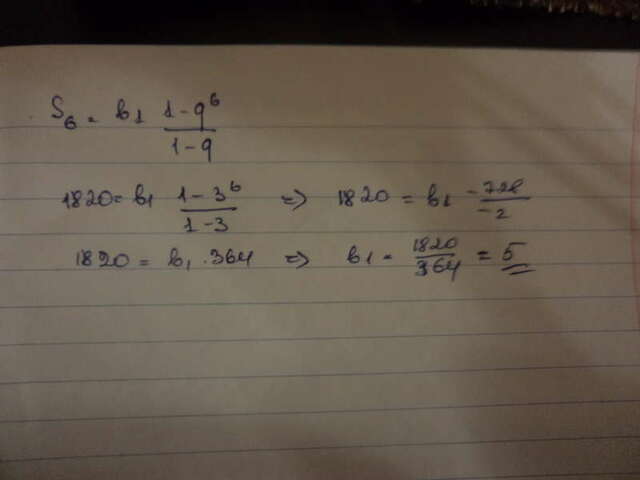 S₆ = b₁ (1-q⁶)/(1-q)
1820 = b₁ (1-3⁶)/(1-3) => 1820 = b₁ (-728)/(-2)
1820 = b₁ . 364 => b₁ = 1820/364 = 5